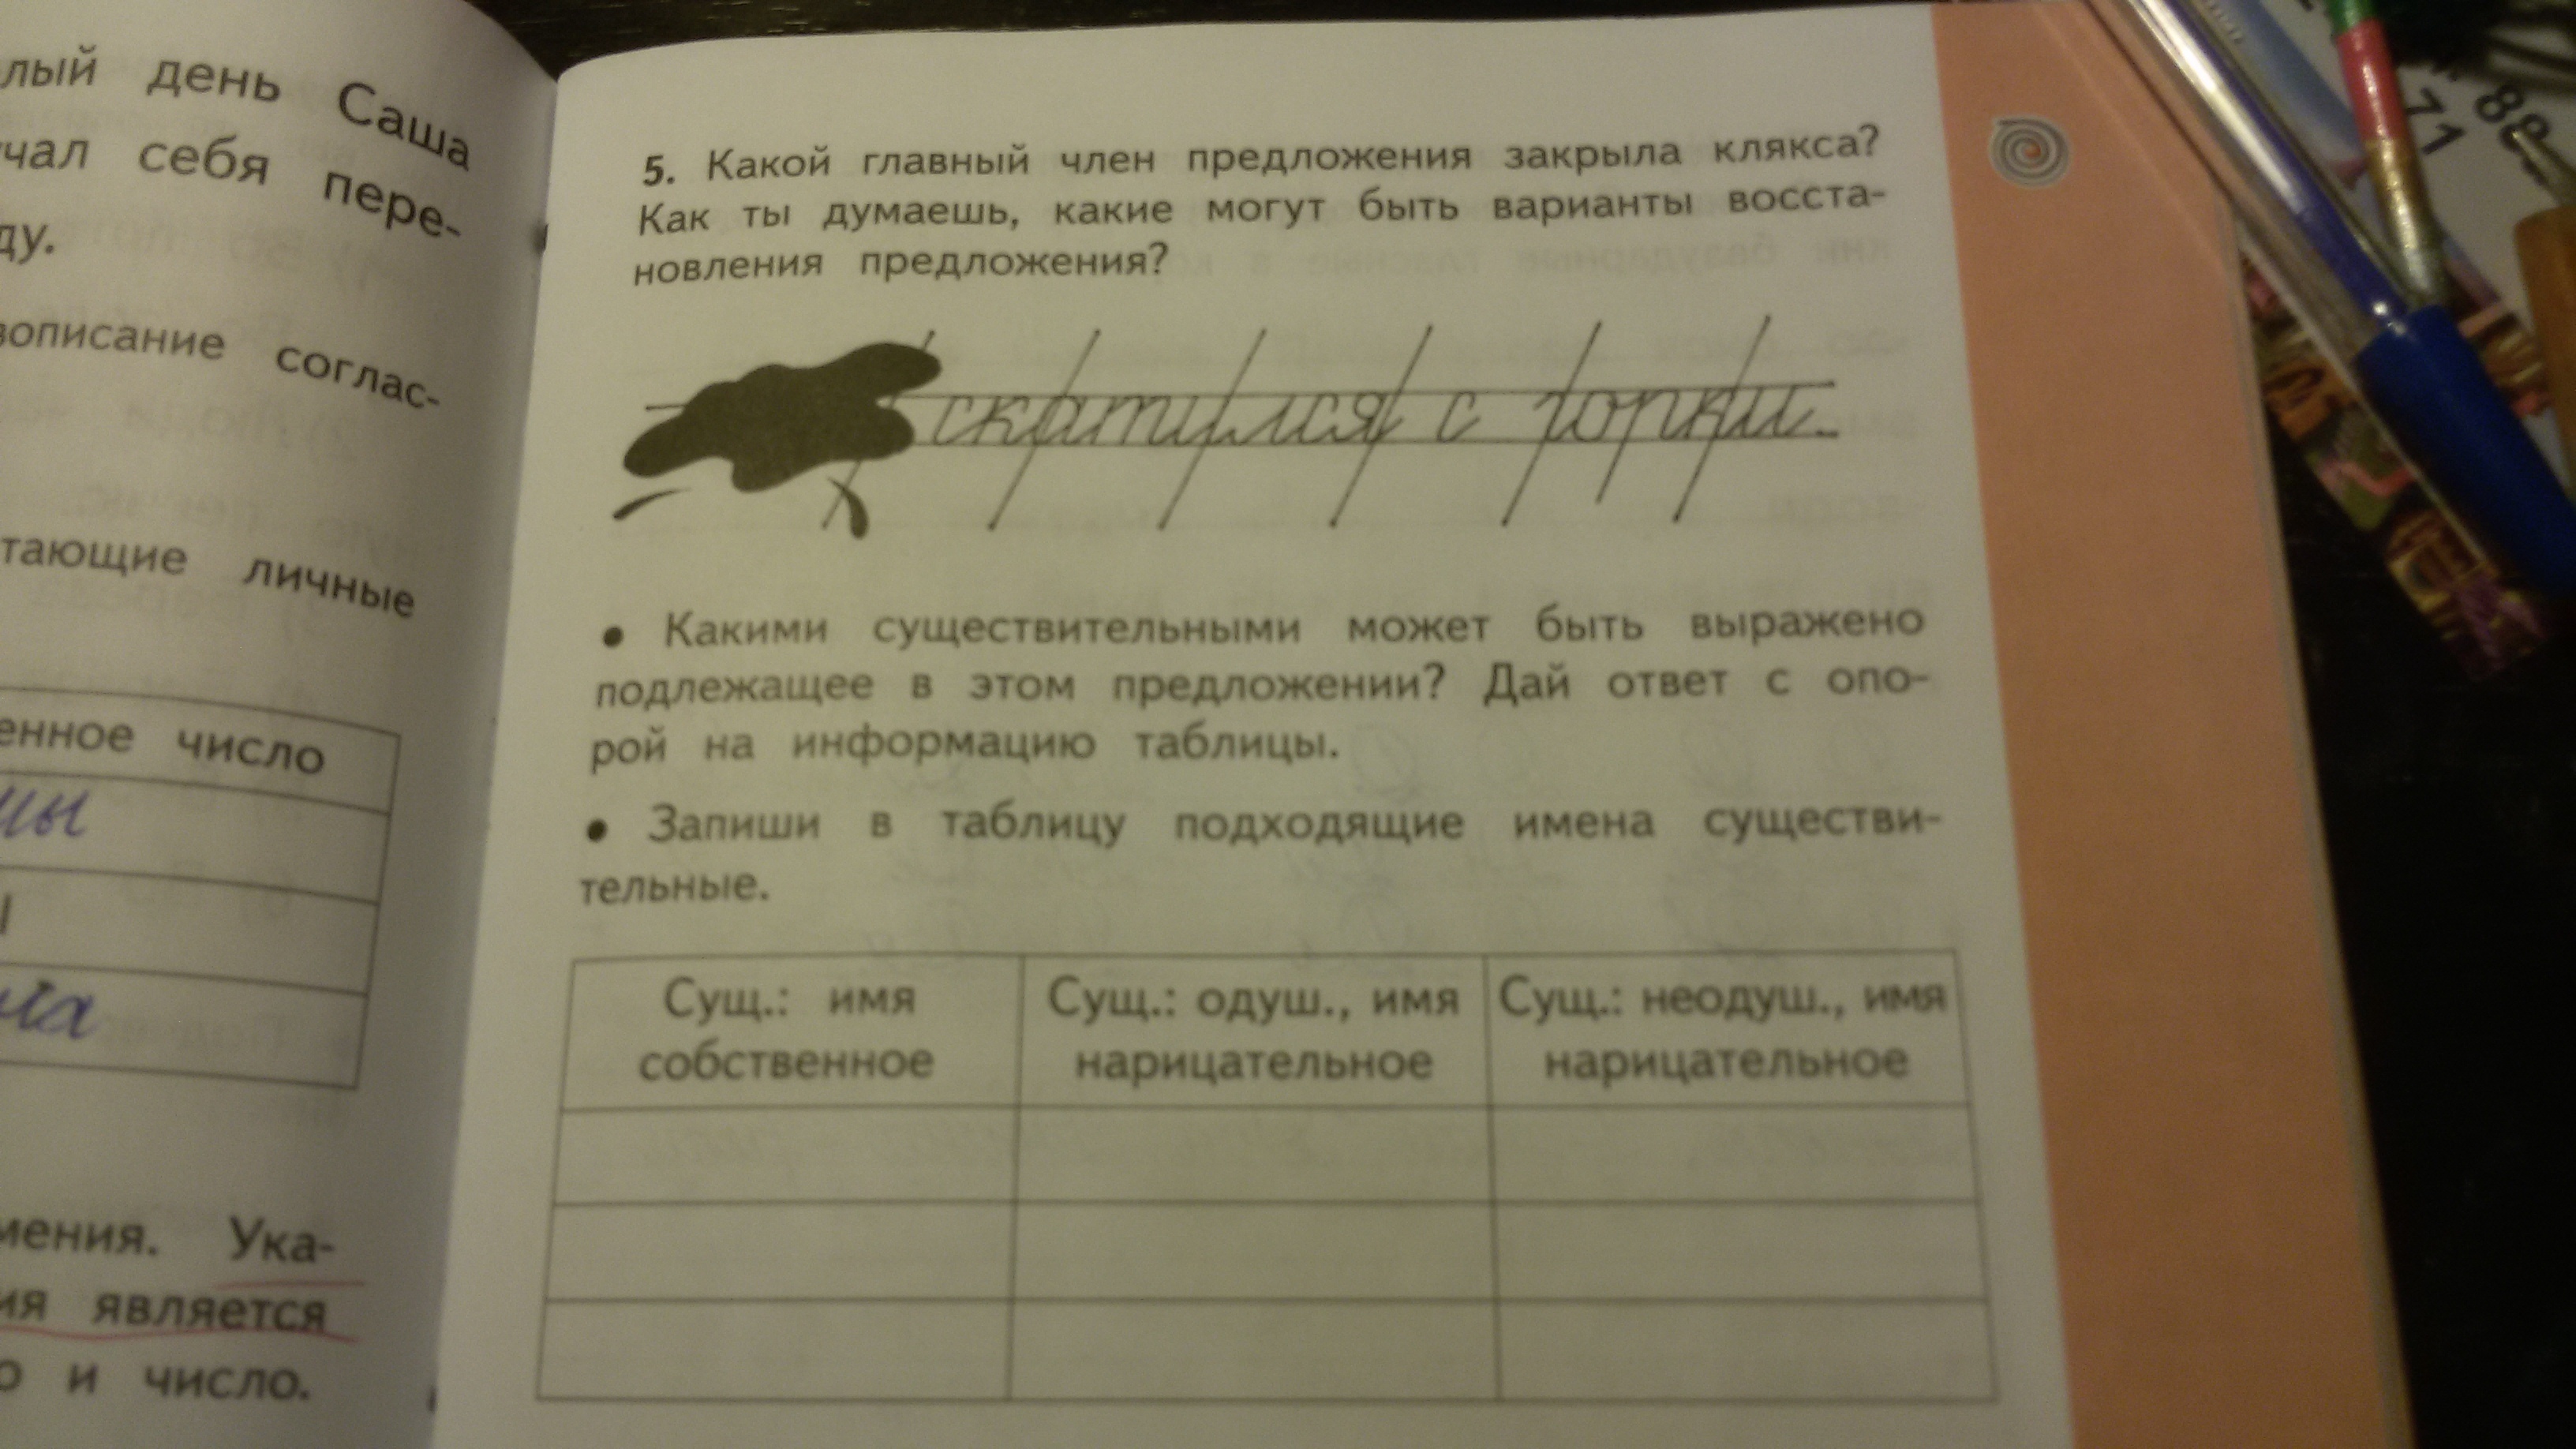 лый день Саша
чал себя пере-
ду.
вописание соглас-
тающие личные
енное число
мения. Ука-
ия является
о и число.
5. Какой главный член предложения закрыла клякса?
Как ты думаешь, какие могут быть варианты восста-
новления предложения?
скатился с горки.
• Какими существительными может быть выражено
подлежащее в этом предложении? Дай ответ с опо-
рой на информацию таблицы.
• Запиши в таблицу подходящие имена существи-
тельные.
Сущ.: имя собственное
Сущ.: одуш., имя нарицательное
Сущ.: неодуш., имя нарицательное
71
88